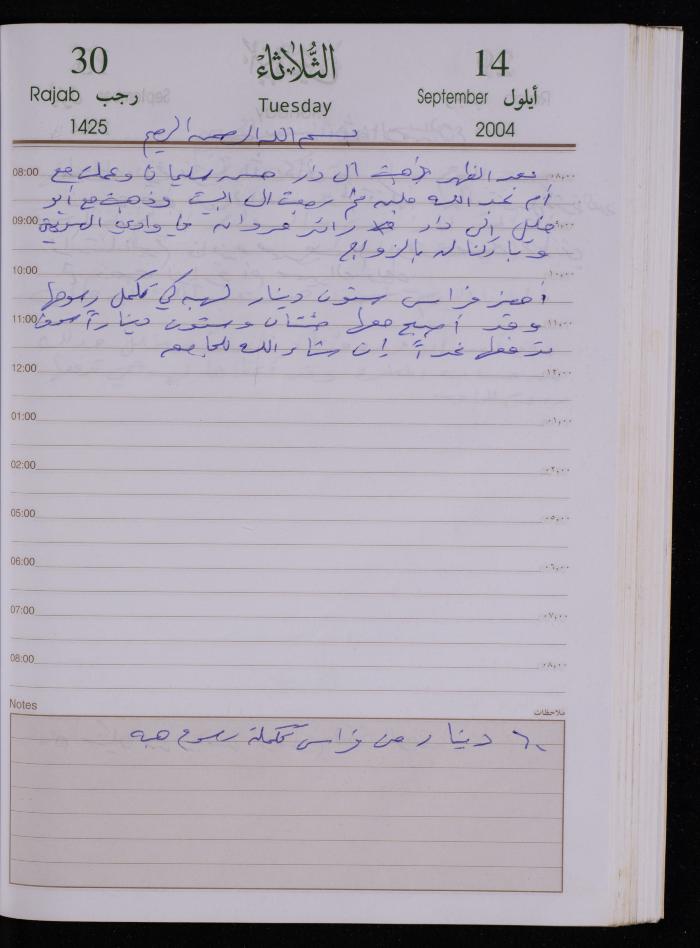 30 الثلاثاء 14
Rajab رجب Tuesday September أيلول
1425 2004
بسم الله الرحمن الرحيم
08:00 بعد الظهر ذهبت الى دار حسن سليمان وعملت مع ٠٨:٠٠
أم عبد الله ثم رجعت الى البيت وذهبت مع أبو
09:00 خليل الى دار زائر مروان وادي
وباركنا له بالزواج
10:00 ١٠:٠٠
أحضر فراس ستون دينار لهبه كي تكمل رسومها
11:00 وقد أصبح معها مئتان وستون ديناراً سوف ١١:٠٠
تدفعها غداً إن شاء الله للجامعه
12:00 ١٢:٠٠
01:00 ٠١:٠٠
02:00 ٠٢:٠٠
05:00 ٠٥:٠٠
06:00 ٠٦:٠٠
07:00 ٠٧:٠٠
08:00 ٠٨:٠٠
Notes ملاحظات
٦٠ دينار من فراس تكملة رسوم هبه